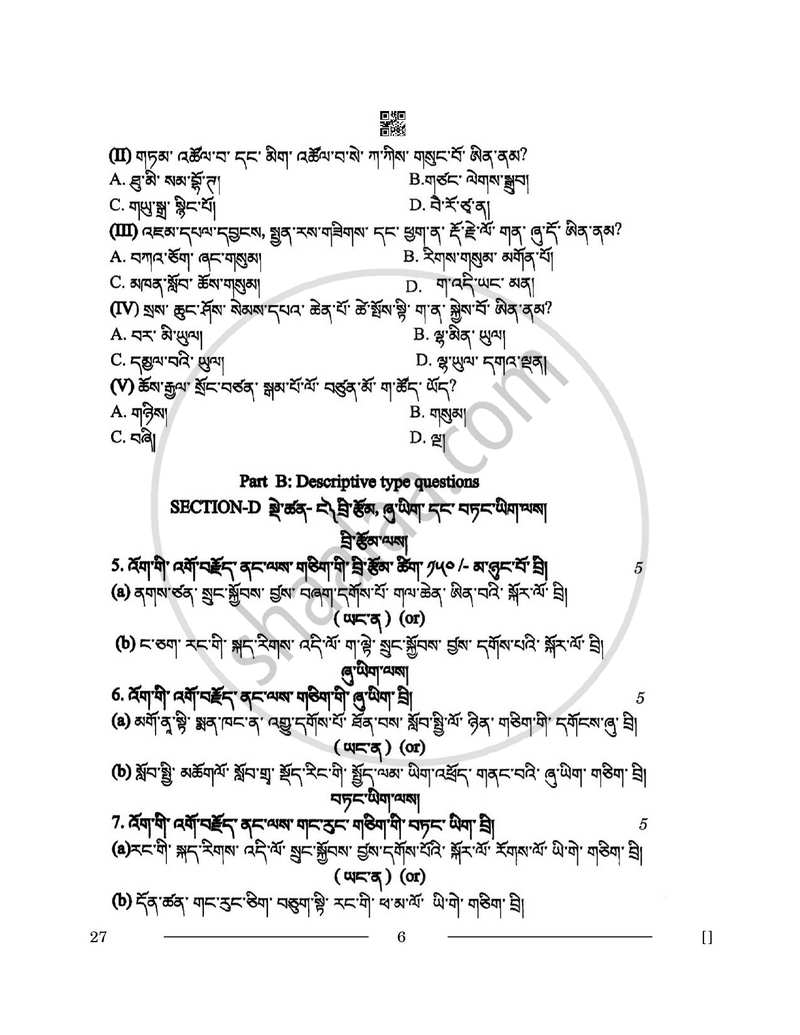 (II) གཏམ་ འཚོལ་བ་ དང་ མིག་ འཚོལ་བ་སེ་ ཀ་ཀིས་ གསུང་བོ་ ཨིན་ནམ?
A. ཐུ་མི་ སམ་བྷོ་ཊ། B.གཙང་ ལེགས་སྒྲུབ།
C. གཡུ་སྒྲ་ སྙིང་པོ། D. བེ་རོ་ཙ་ན།
(III) འཇམ་དཔལ་དབྱངས, སྤྱན་རས་གཟིགས་ དང་ ཕྱག་ན་ རྡོ་རྗེ་ལོ་ གན་ ཞུ་དོ་ ཨིན་ནམ?
A. བཀའ་ཅོག་ ཞང་གསུམ། B. རིགས་གསུམ་ མགོན་པོ།
C. མཁན་སློབ་ ཆོས་གསུམ། D. ག་འདི་ཡང་ མན།
(IV) སྲས་ ཆུང་ཤོས་ སེམས་དཔའ་ ཆེན་པོ་ ཚེ་སྤོས་སྟི་ ག་ན་ སྐྱེས་བོ་ ཨིན་ནམ?
A. བར་ མི་ཡུལ། B. ལྷ་མིན་ ཡུལ།
C. དམྱལ་བའི་ ཡུལ། D. ལྷ་ཡུལ་ དགའ་ལྡན།
(V) ཆོས་རྒྱལ་ སྲོང་བཙན་ སྒམ་པོ་ལོ་ བཙུན་མོ་ ག་ཚོད་ ཡོད?
A. གཉིས། B. གསུམ།
C. བཞི། D. ལྔ།
Part B: Descriptive type questions
SECTION-D སྡེ་ཚན- ང༽ བྲི་རྩོམ, ཞུ་ཡིག་ དང་ བཏང་ཡིག་ལས།
བྲི་རྩོམ་ལས།
5. འོག་གི་ འགོ་བརྗོད་ ནང་ལས་ གཅིག་གི་ བྲི་རྩོམ་ ཚིག་ ༡༥༠/- མ་ཉུང་བོ་ བྲི། 5
(a) ནགས་ཙན་ སྲུང་སྐྱོབས་ བྱས་ བཞག་དགོས་པོ་ གལ་ཆེན་ ཨིན་བའི་ སྐོར་ལོ་ བྲི།
( ཡང་ན ) (or)
(b) ང་ཅག་ རང་གི་ སྐད་རིགས་ འདི་ལོ་ ག་ལྟེ་ སྲུང་སྐྱོབས་ བྱས་ དགོས་པའི་ སྐོར་ལོ་ བྲི།
ཞུ་ཡིག་ལས།
6. འོག་གི་ འགོ་བརྗོད་ ནང་ལས་ གཅིག་གི་ ཞུ་ཡིག་ བྲི། 5
(a) མགོ་ན་སྟི་ སྨན་ཁང་ན་ འགྱུ་དགོས་པོ་ ཐོན་བས་ སློབ་སྤྱི་ལོ་ ཉིན་ གཅིག་གི་ དགོངས་ཞུ་ བྲི།
( ཡང་ན ) (or)
(b) སློབ་སྤྱི་ མཆོག་ལོ་ སློབ་གྲྭ་ སྡོད་རིང་གི་ སྤྱོད་ལམ་ ཡིག་འཕྲོད་ གནང་བའི་ ཞུ་ཡིག་ གཅིག་ བྲི།
བཏང་ཡིག་ལས།
7. འོག་གི་ འགོ་བརྗོད་ ནང་ལས་ གང་རུང་ གཅིག་གི་ བཏང་ ཡིག་ བྲི། 5
(a)རང་གི་ སྐད་རིགས་ འདི་ལོ་ སྲུང་སྐྱོབས་ བྱས་དགོས་པོའི་ སྐོར་ལོ་ རོགས་ལོ་ ཡི་གེ་ གཅིག་ བྲི།
( ཡང་ན ) (or)
(b) དོན་ཚན་ གང་རུང་ཅིག་ བཅུག་སྟི་ རང་གི་ ཕ་མ་ལོ་ ཡི་གེ་ གཅིག་ བྲི།
27 6 []
shaalaa.com